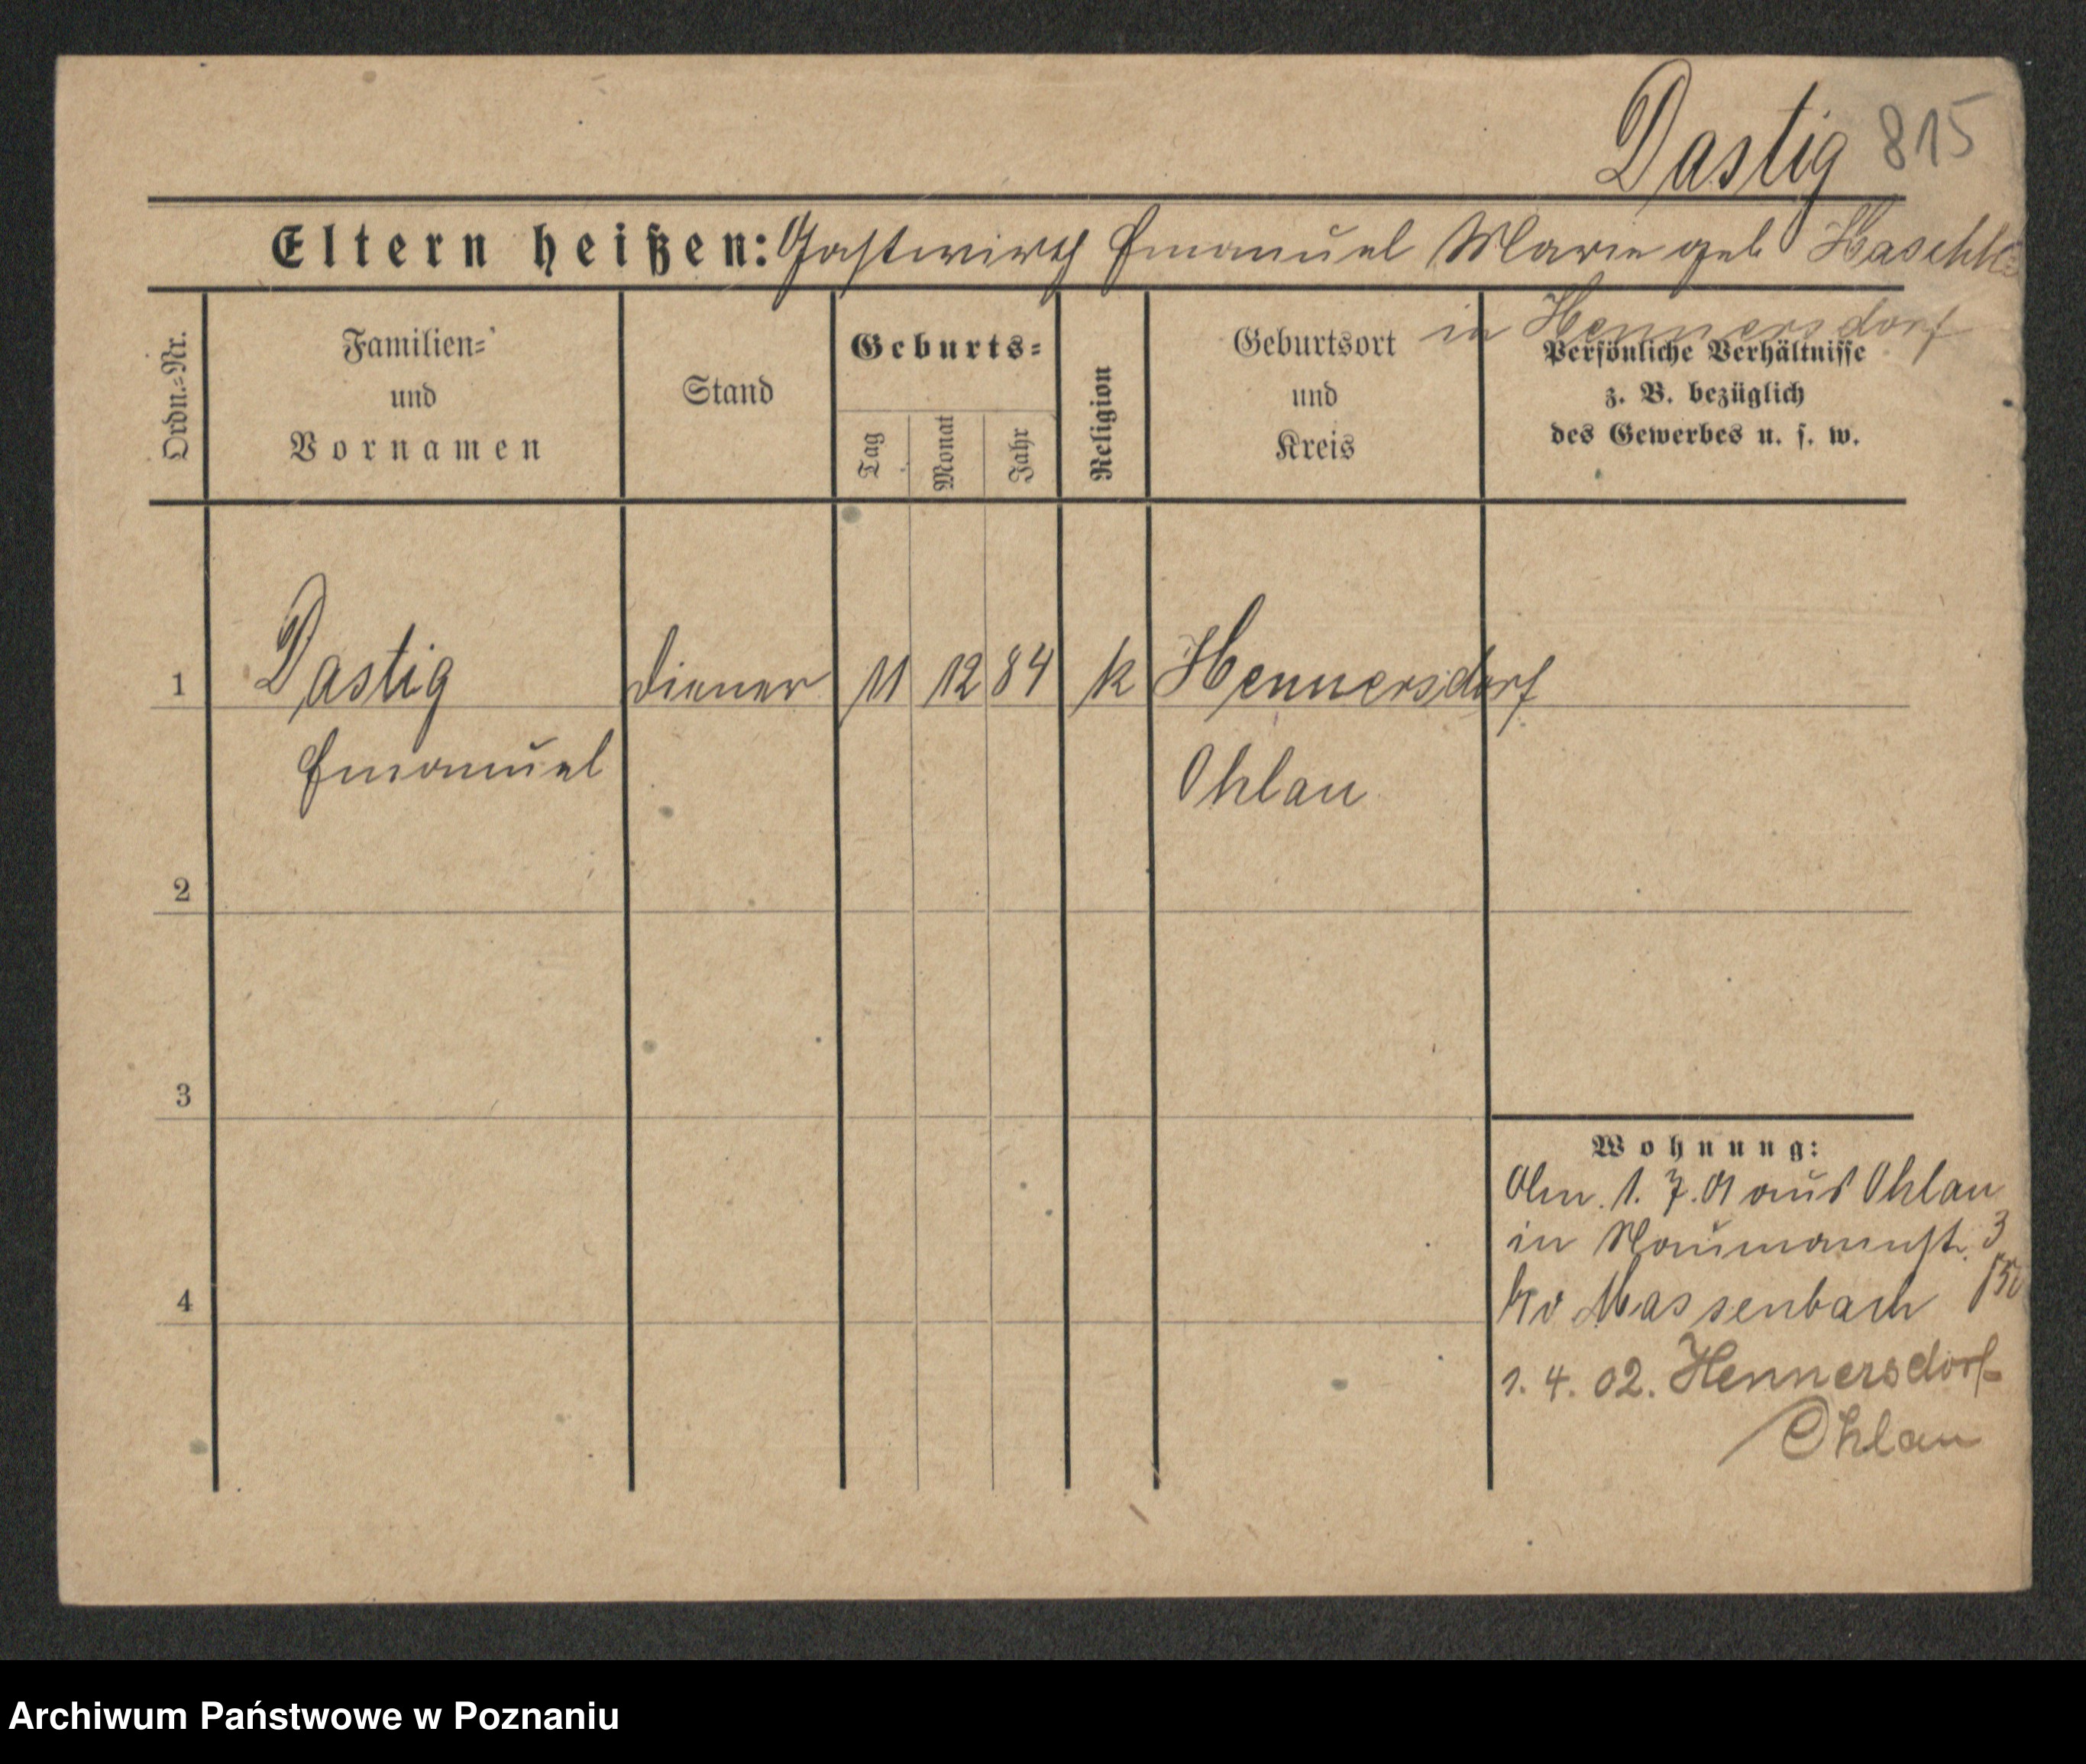 Dastig 815
Eltern heißen: Gastwirth Emanuel Marie geb Haschke
in Hennersdorf
Ordn.=Nr.
Familien=
und
Vornamen
Stand
Geburts=
Tag
Monat
Jahr
Religion
Geburtsort
und
Kreis
Persönliche Verhältnisse
z. B. bezüglich
des Gewerbes u. s. w.
1 Dastig Diener 11 12 84 k Hennersdorf
Emanuel Ohlau
2
3
4
Wohnung:
1. 7. 01 aus Ohlau
in Naumannstr. 3
b/ v Massenbach
1. 4. 02. Hennersdorf-
Ohlau
Archiwum Państwowe w Poznaniu